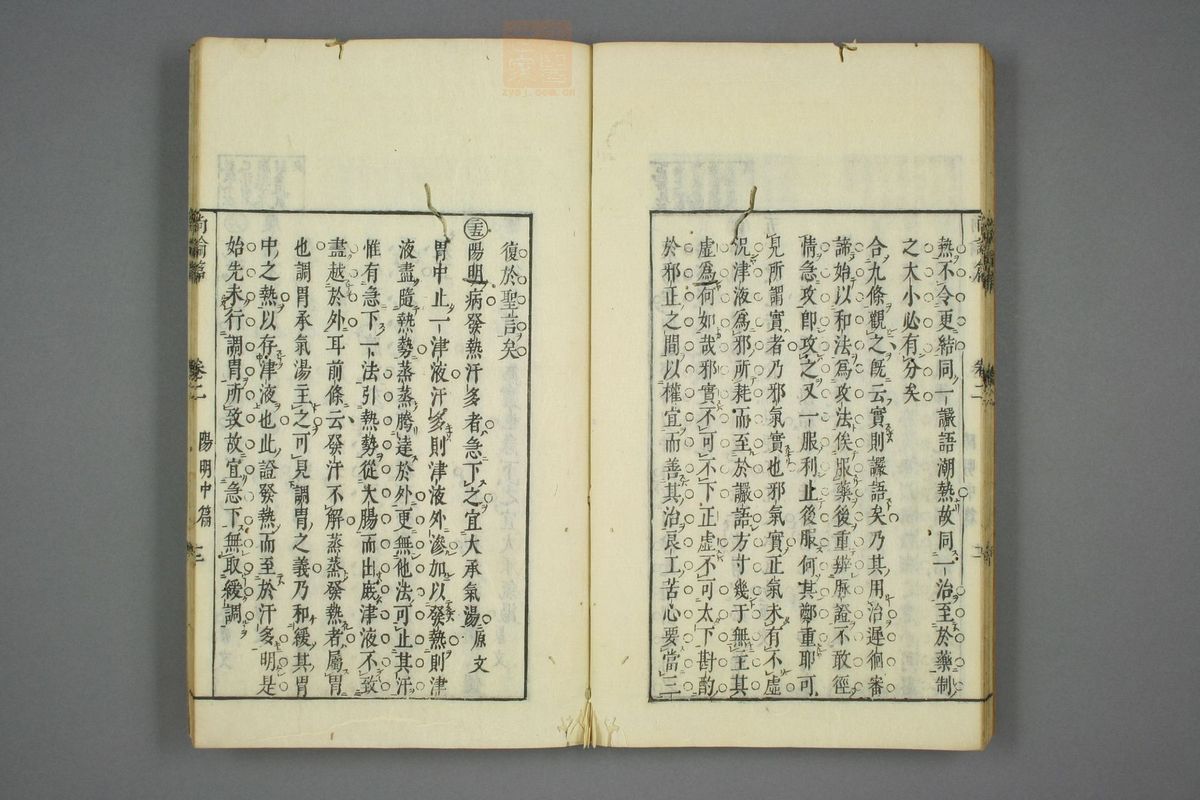 熱不令更結同一讝語潮熱故同一治至於藥制
之大小必有分矣
合九條觀之旣云實則讝語矣乃其用治遲徊審
諦始以和法爲攻法俟服藥後重辨脉證不敢徑
情急攻卽攻之又一服利止後服何其鄭重耶可
見所謂實者乃邪氣實也邪氣實正氣未有不虛
況津液爲邪所耗而至於讝語方寸幾于無主其
虛爲何如哉邪實不可不下正虛不可太下斟酌
於邪正之間以權宜而善其治良工苦心要當三
復於聖言矣
陽明病發熱汗多者急下之宜大承氣湯原文
胃中止一津液汗多則津液外滲加以發熱則津
液盡隨熱勢蒸蒸騰達於外更無他法可止其汗
惟有急下一法引熱勢從大腸而出庶津液不致
盡越於外耳前條云發汗不解蒸蒸發熱者屬胃
也調胃承氣湯主之可見調胃之義乃和緩其胃
中之熱以存津液也此證發熱而至於汗多明是
始先未行調胃所致故宜急下無取緩調
尙論篇
卷二
陽明中篇